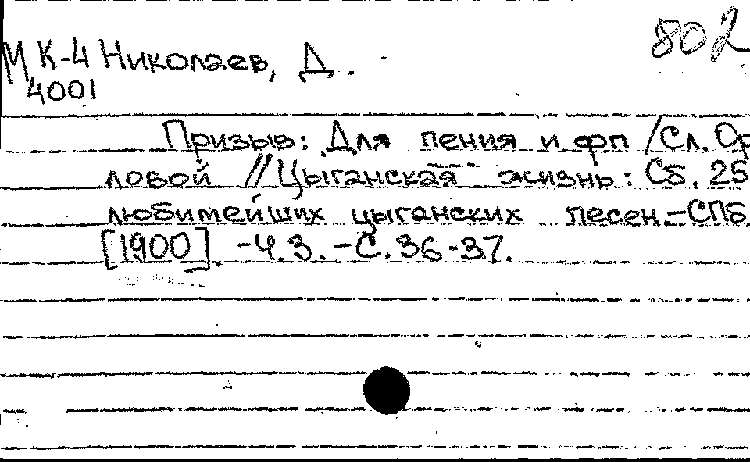 802
М К-4 Николаев, Д.
4001
Призыв: Для пения и фп /Сл. Ор
ловой // Цыганская жизнь: Сб. 25
любимейших цыганских песен.-СПб.
[1900]. -Ч.3. -С.36-37.